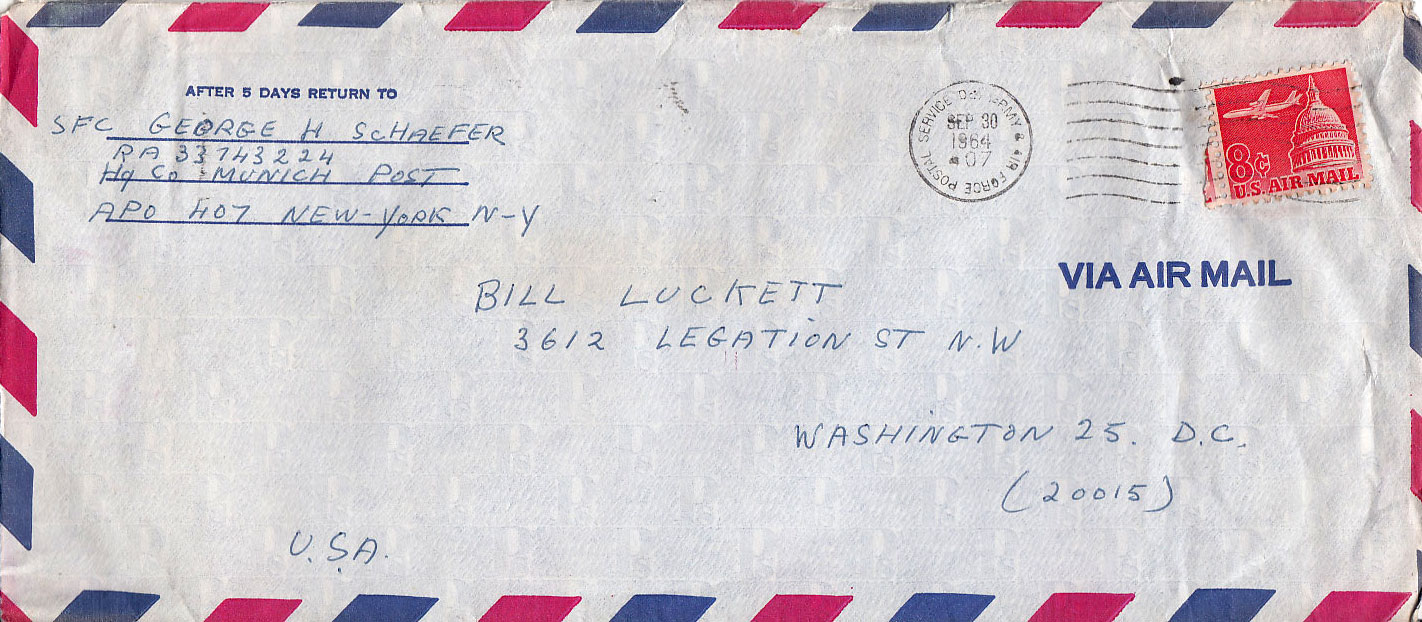 AFTER 5 DAYS RETURN TO
SFC GEORGE H SCHAEFER
RA 33743224
Hq Co MUNICH POST
APO 407 NEW-YORK N-Y
POSTAL SERVICE ARMY & AIR FORCE
SEP 30
1964
07
8¢
U.S. AIR MAIL
VIA AIR MAIL
BILL LUCKETT
3612 LEGATION ST N.W
WASHINGTON 25. D.C.
(20015)
U.S.A.